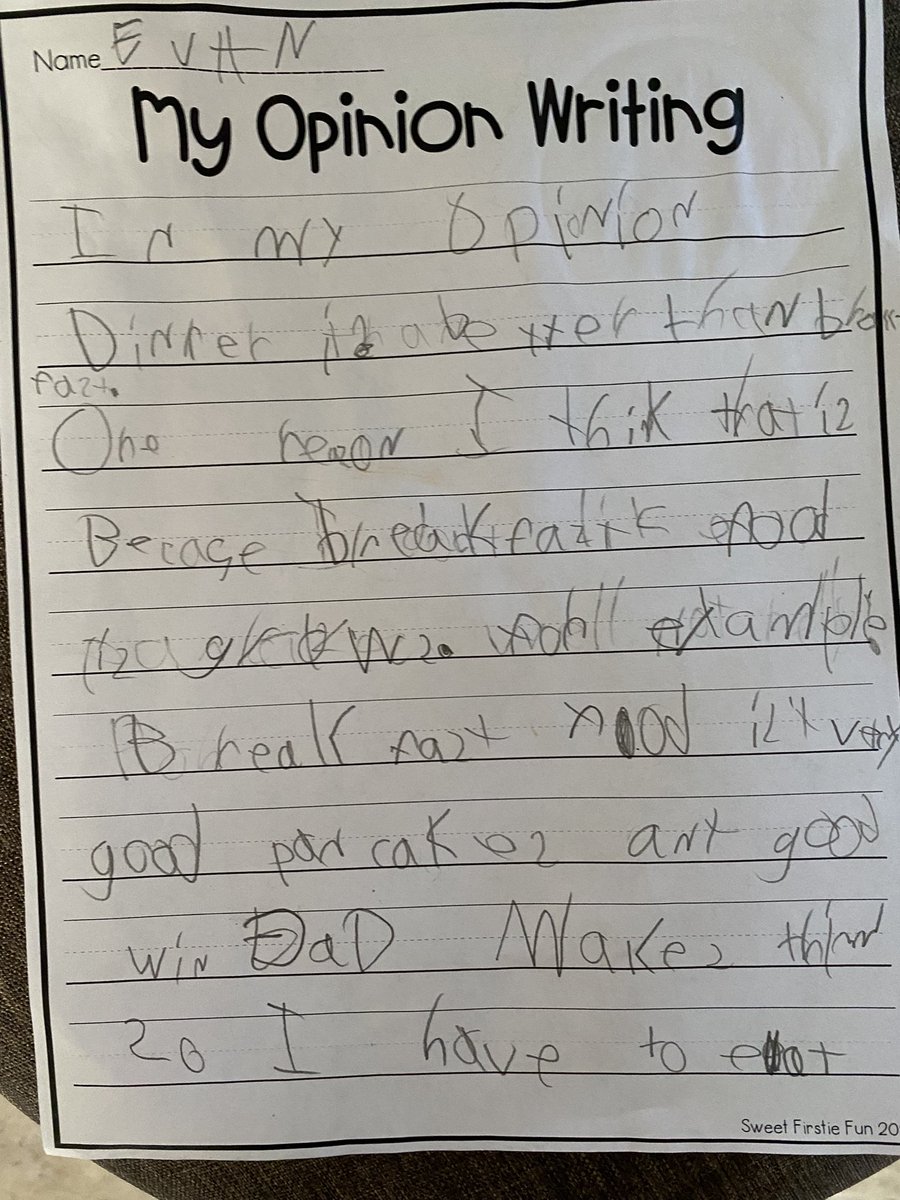 Name EVAN
My Opinion Writing
In my Opinion
Dinner iz a betterthan break-
fazt.
One rezon I thik that iz
Becage breakfazt food
example
Break fazt food izn't very
good pancakez arnt good
win DaD Makez them
zo I have to eat
Sweet Firstie Fun 20